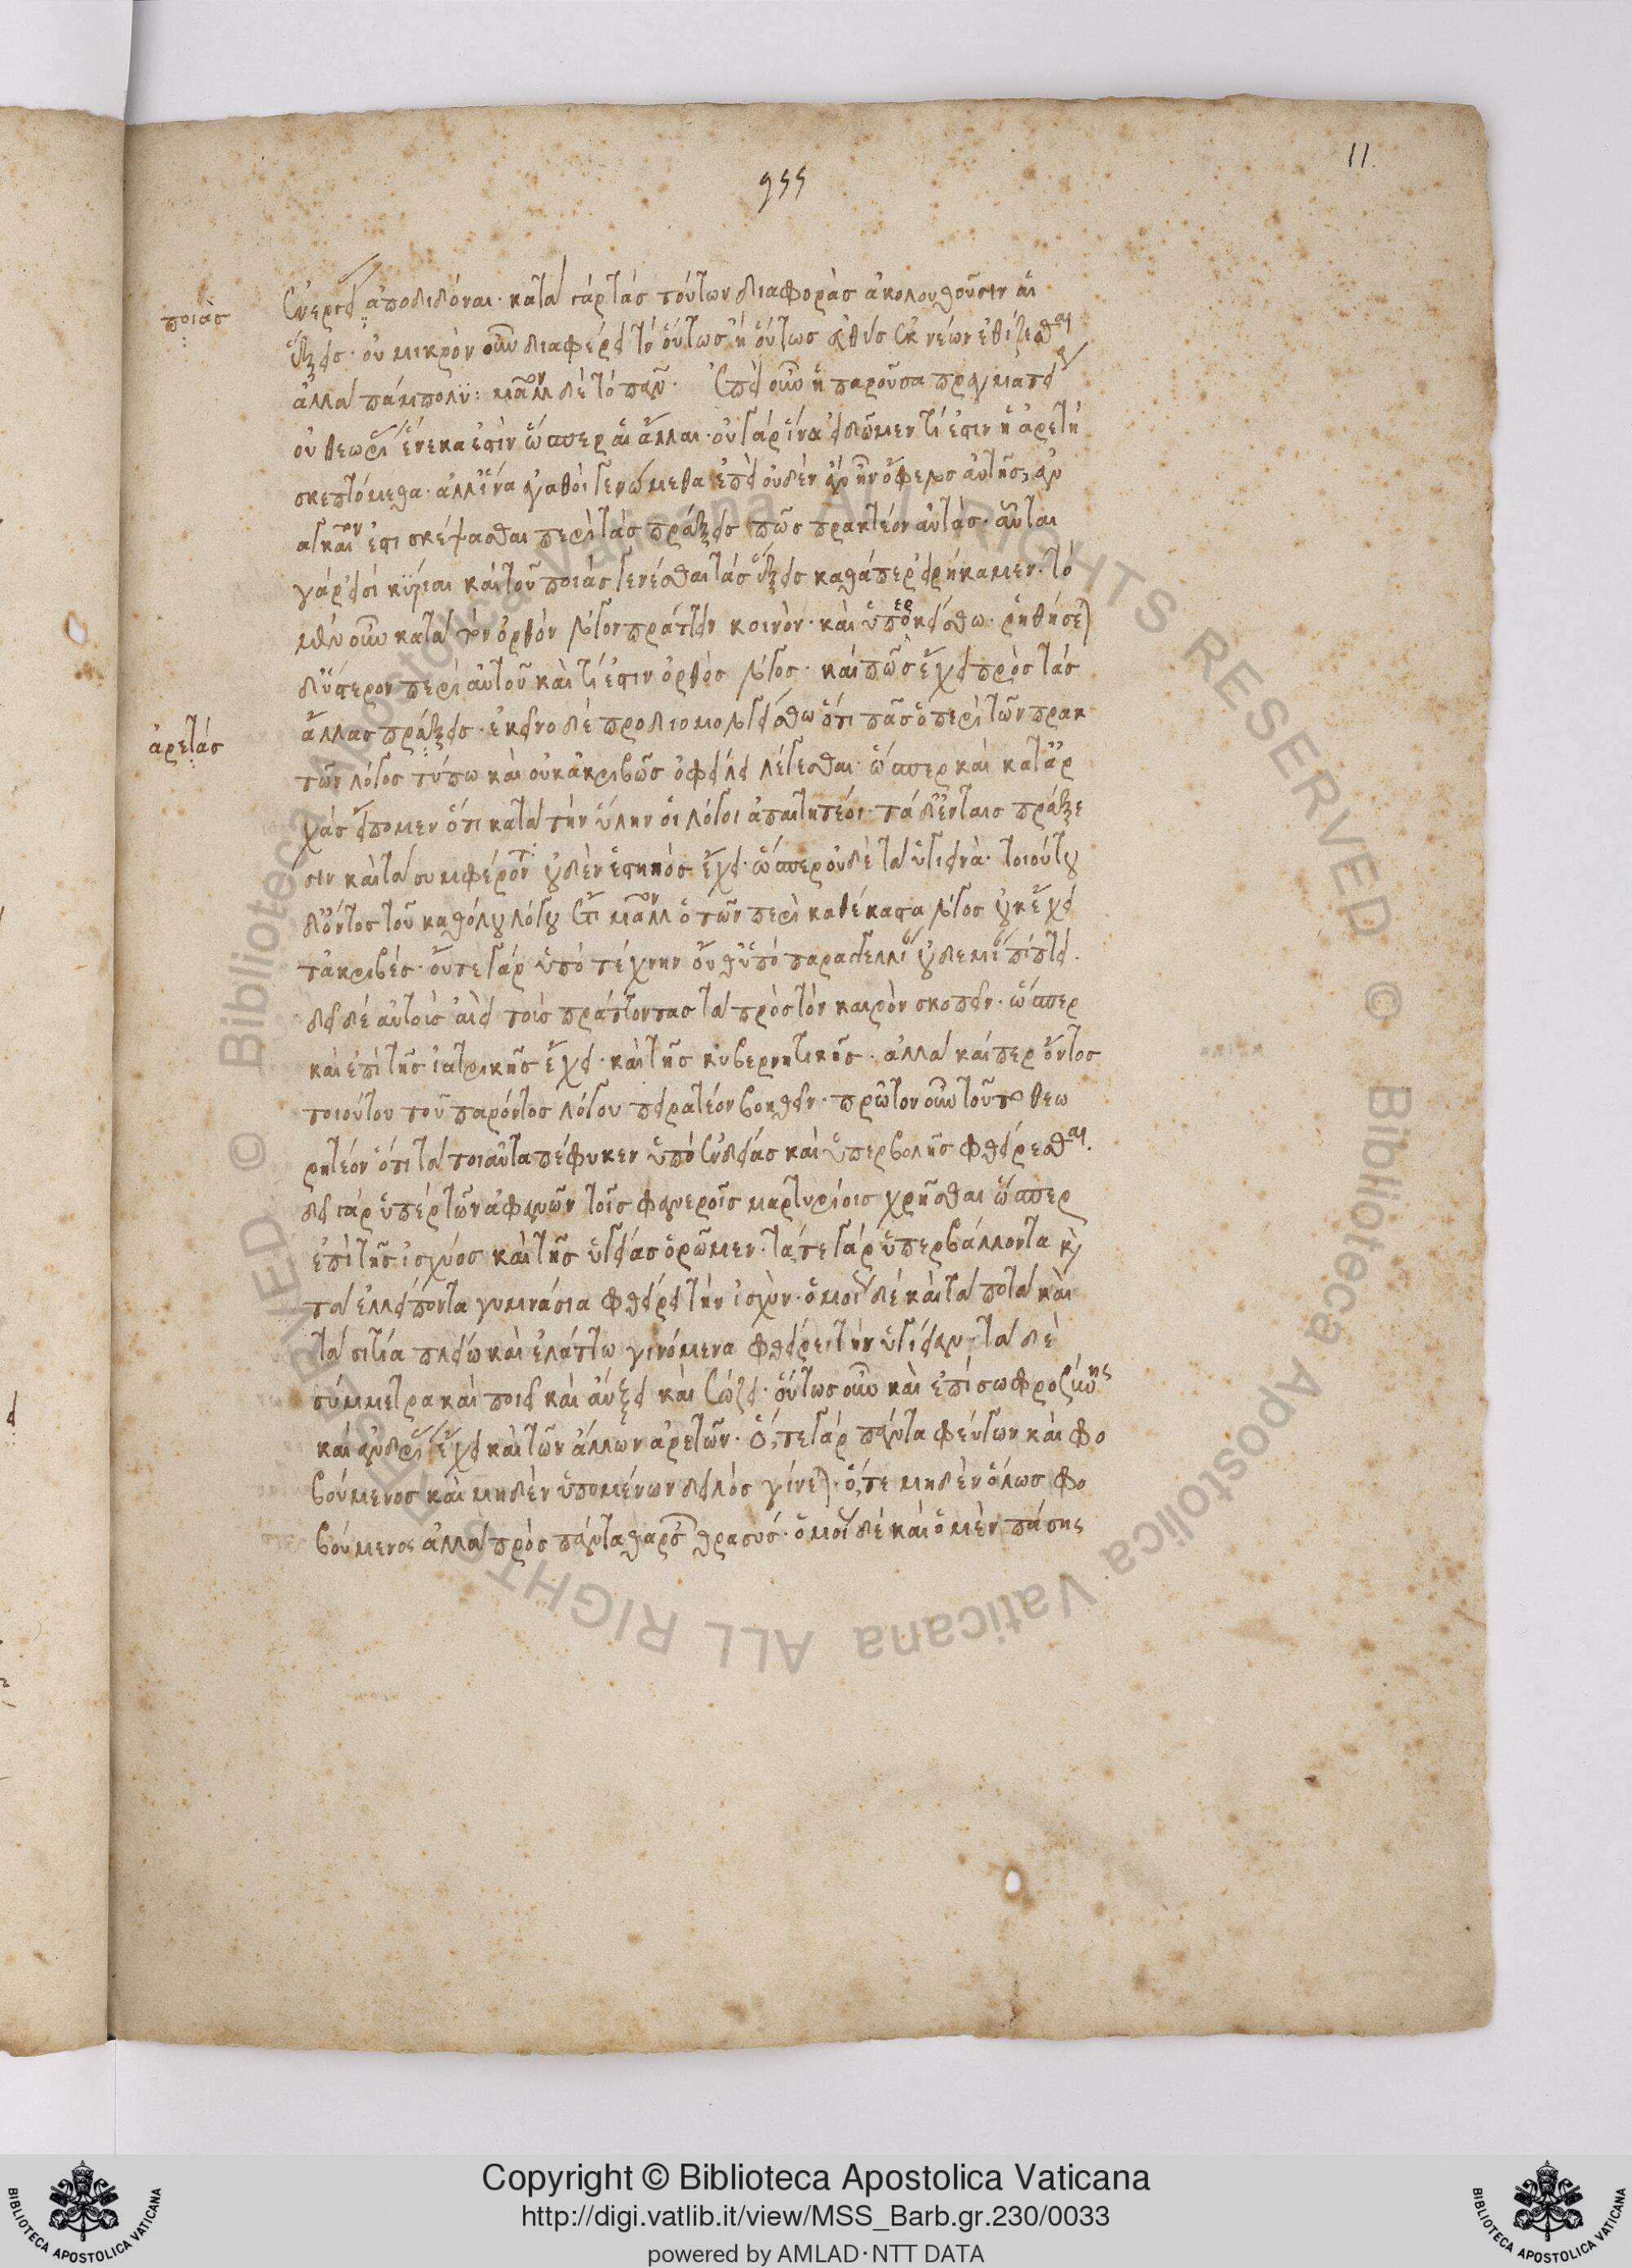 11.
955
ποιὰς
ἐνεργεί ἀποδιδόναι· κατὰ γὰρ τὰς τούτων διαφορὰς ἀκολουθοῦσιν αἱ
ἕξεις· οὐ μικρὸν οὖν διαφέρει τὸ οὕτως ἢ οὕτως εὐθὺς ἐκ νέων ἐθίζεσθαι
ἀλλὰ πάμπολυ: μᾶλλον δὲ τὸ πᾶν. Ἐπεὶ οὖν ἡ παροῦσα πραγματεία
οὐ θεωρίας ἕνεκα ἐστὶν ὥσπερ αἱ ἄλλαι· οὐ γὰρ ἵνα εἰδῶμεν τί ἐστιν ἡ ἀρετὴ
σκεπτόμεθα· ἀλλ' ἵνα ἀγαθοὶ γενώμεθα ἐπεὶ οὐδὲν ἂν ἦν ὄφελος αὐτῆς, ἀν
αγκαῖον ἐστι σκέψασθαι περὶ τὰς πράξεις πῶς πρακτέον αὐτάς· αὗται
γάρ εἰσι κύριαι καὶ τοῦ ποιὰς γενέσθαι τὰς ἕξεις καθάπερ εἰρήκαμεν· τὸ
μὲν οὖν κατὰ τὸν ὀρθὸν λόγον πράττειν κοινὸν· καὶ ὑποκείσθω· ῥηθήσεται
δ' ὕστερον περὶ αὐτοῦ καὶ τί ἐστιν ὀρθὸς λόγος· καὶ πῶς ἔχει πρὸς τὰς
ἀρετάς
ἄλλας πράξεις· ἐκεῖνο δὲ προδιομολογείσθω ὅτι πᾶς ὁ περὶ τῶν πρακ
τῶν λόγος τύπω καὶ οὐκ ἀκριβῶς ὀφείλει λέγεσθαι· ὥσπερ καὶ κατ' ἀρ
χὰς εἴπομεν ὅτι κατὰ τὴν ὕλην οἱ λόγοι ἀπαιτητέοι· τὰ δ' ἐν ταῖς πράξε
σιν καὶ τὰ συμφέροντα οὐδὲν ἑστηκὸς ἔχει· ὥσπερ οὐδὲ τὰ ὑγιεινὰ· τοιούτου
δ' ὄντος τοῦ καθόλου λόγου ἔτι μᾶλλον ὁ τῶν περὶ καθέκαστα λόγος οὐκ ἔχει
τἀκριβές· οὔτε γὰρ ὑπὸ τέχνην οὔθ' ὑπὸ παραγγελλίαν οὐδεμίαν πίπτει.
δεῖ δὲ αὐτοὺς αἰεὶ τοὺς πράττοντας τὰ πρὸς τὸν καιρὸν σκοπεῖν· ὥσπερ
καὶ ἐπὶ τῆς ἰατρικῆς ἔχει· καὶ τῆς κυβερνητικῆς· ἀλλὰ καίπερ ὄντος
τοιούτου τοῦ παρόντος λόγου πειρατέον βοηθεῖν· πρῶτον οὖν τοῦτο θεω
ρητέον ὅτι τὰ τοιαῦτα πέφυκεν ὑπὸ ἐνδείας καὶ ὑπερβολῆς φθείρεσθαι.
δεῖ γὰρ ὑπὲρ τῶν ἀφανῶν τοῖς φανεροῖς μαρτυρίοις χρῆσθαι ὥσπερ
ἐπὶ τῆς ἰσχύος καὶ τῆς ὑγείας ὁρῶμεν· τά τε γὰρ ὑπερβάλλοντα καὶ
τὰ ἐλλείποντα γυμνάσια φθείρει τὴν ἰσχὺν· ὁμοίως δὲ καὶ τὰ ποτὰ καὶ
τὰ σιτία πλείω καὶ ἐλάττω γινόμενα φθείρει τὴν ὑγίειαν· τὰ δὲ
σύμμετρα καὶ ποιεῖ καὶ αὔξει καὶ σώζει· οὕτως οὖν καὶ ἐπὶ σωφροσύνης
καὶ ἀνδρίας ἔχει καὶ τῶν ἄλλων ἀρετῶν· ὅ, τε γὰρ πάντα φεύγων καὶ φο
βούμενος καὶ μηδὲν ὑπομένων δειλὸς γίνεται· ὅ, τε μηδὲν ὅλως φο
βούμενος ἀλλὰ πρὸς πάντα θαρσῶν θρασύς· ὁμοίως δὲ καὶ ὁ μὲν πάσης
© Biblioteca Apostolica Vaticana ALL RIGHTS RESERVED © Biblioteca Apostolica Vaticana ALL RIGHTS RESERVED
BIBLIOTECA APOSTOLICA VATICANA
Copyright © Biblioteca Apostolica Vaticana
http://digi.vatlib.it/view/MSS_Barb.gr.230/0033
powered by AMLAD·NTT DATA
BIBLIOTECA APOSTOLICA VATICANA